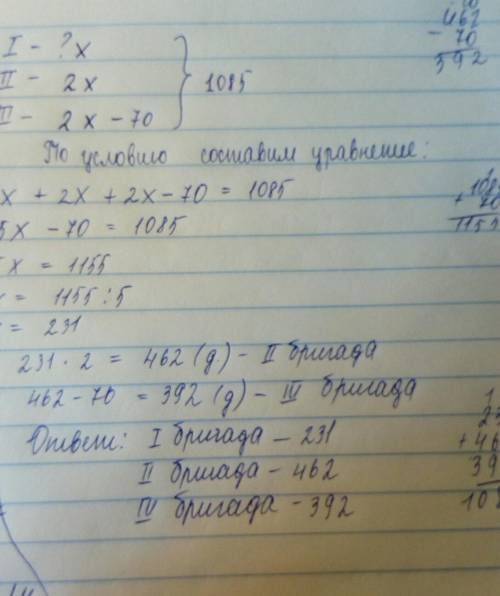 I - ? x
II - 2x
II - 2x - 70
1085
462
- 70
392
По условию составим уравнение:
x + 2x + 2x - 70 = 1085
5x - 70 = 1085
+ 70
1155
5x = 1155
x = 1155 : 5
= 231
231 · 2 = 462 (д) - II бригада
462 - 70 = 392 (д) - III бригада
Ответ: I бригада - 231
II бригада - 462
IV бригада - 392
23
+ 46
39
108